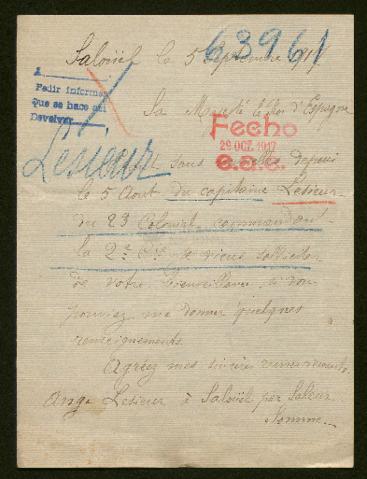 Salouël le 5 Septembre 1917
63961
A
Pedir informes
que se hace así
Devolver
Sa Majesté le Roi d'Espagne
Fecho
29 OCT. 1917
e.a.e.
Lesieur
Etant sans nouvelles depuis
le 5 Aout du capitaine Lesieur
du 23 Colonial commandant
la 2e Cie, je viens solliciter
de votre bienveillance, si vous
pouviez me donner quelques
renseignements
Agréez mes sincères remerciements.
Ange Lesieur à Salouël par Saleux
Somme